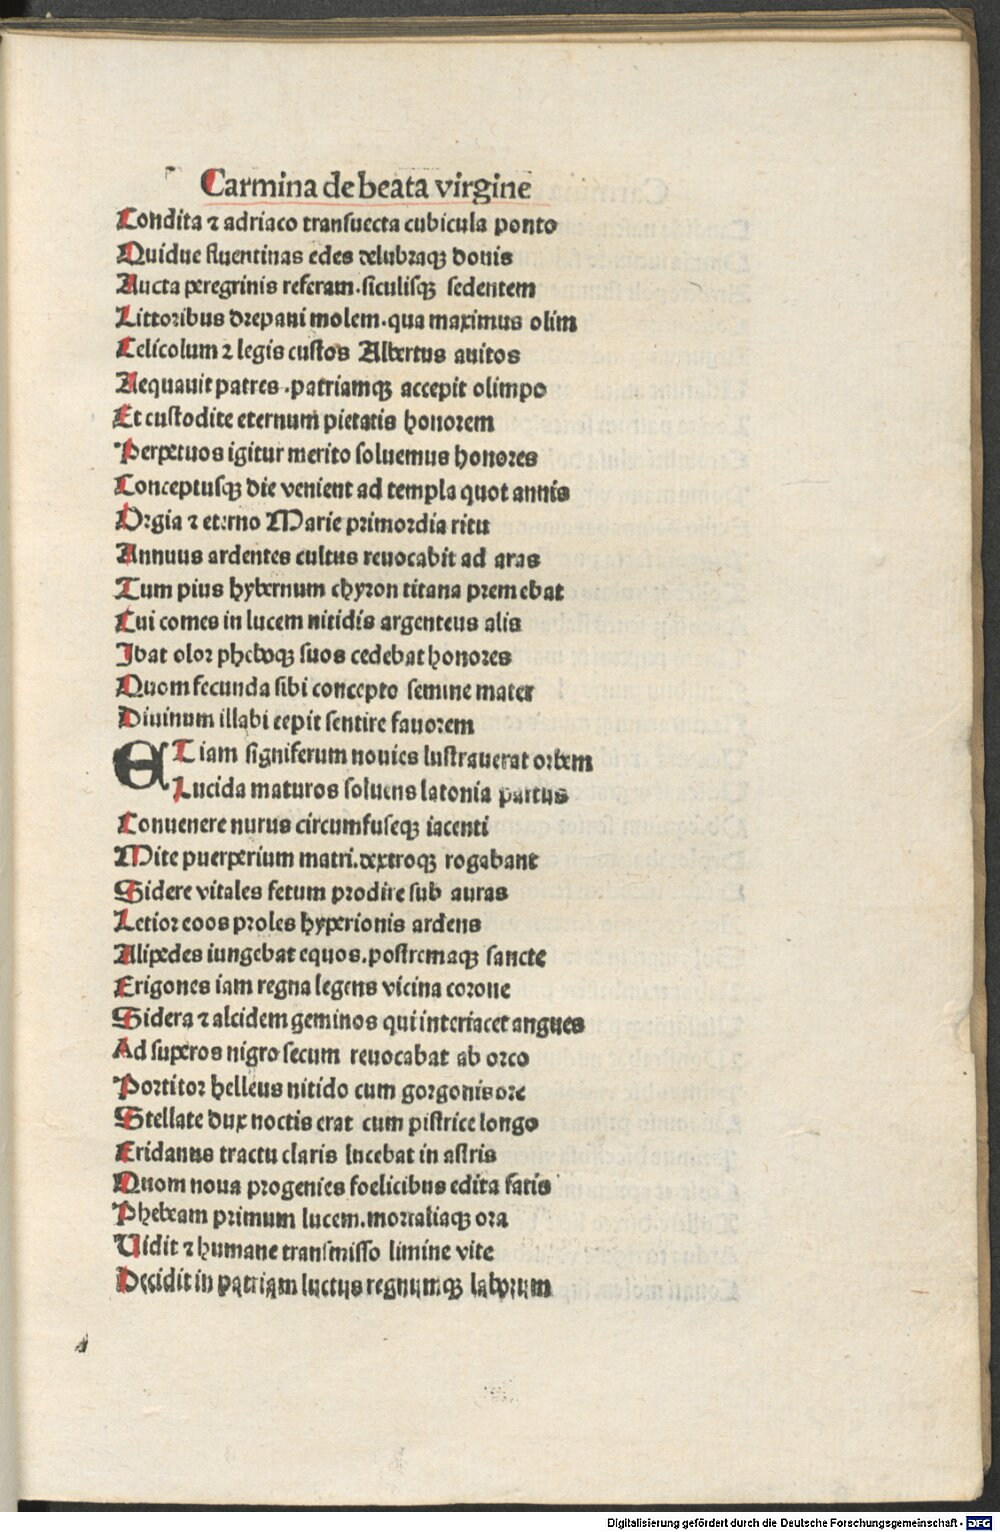 Carmina de beata virgine
Condita ⁊ adriaco transuecta cubicula ponto
Quidue fluentinas edes delubraqꝫ donis
Aucta peregrinis referam.siculisqꝫ sedentem
Littoribus drepani molem.qua maximus olim
Celicolum ⁊ legis custos Albertus auitos
Aequauit patres.patriamqꝫ accepit olimpo
Et custodite eternum pietatis honorem
Perpetuos igitur merito soluemus honores
Conceptusqꝫ die venient ad templa quot annis
Orgia ⁊ eterno Marie primordia ritu
Annuus ardentes cultus reuocabit ad aras
Tum pius hybernum chyron titana premebat
Cui comes in lucem nitidis argenteus alis
Ibat olor pheboqꝫ suos cedebat honores
Quom fecunda sibi concepto semine mater
Diuinum illabi cepit sentire fauorem
ETiam signiferum nouies lustrauerat orbem
Lucida maturos soluens latonia partus
Conuenere nurus circumfuseqꝫ iacenti
Mite puerperium matri.dextroqꝫ rogabant
Sidere vitales fetum prodire sub auras
Letior eoos proles hyperionis ardens
Alipedes iungebat equos.postremaqꝫ sancte
Erigones iam regna legens vicina corone
Sidera ⁊ alcidem geminos qui interiacet angues
Ad superos nigro secum reuocabat ab orco
Portitor helleus nitido cum gorgonis ore
Stellate dux noctis erat cum pistrice longo
Eridanus tractu claris lucebat in astris
Quom noua progenies foelicibus edita fatis
Phebeam primum lucem.mortaliaqꝫ ora
Uidit ⁊ humane transmisso limine vite
Decidit in patriam luctus regnumqꝫ laborum
Digitalisierung gefördert durch die Deutsche Forschungsgemeinschaft - DFG